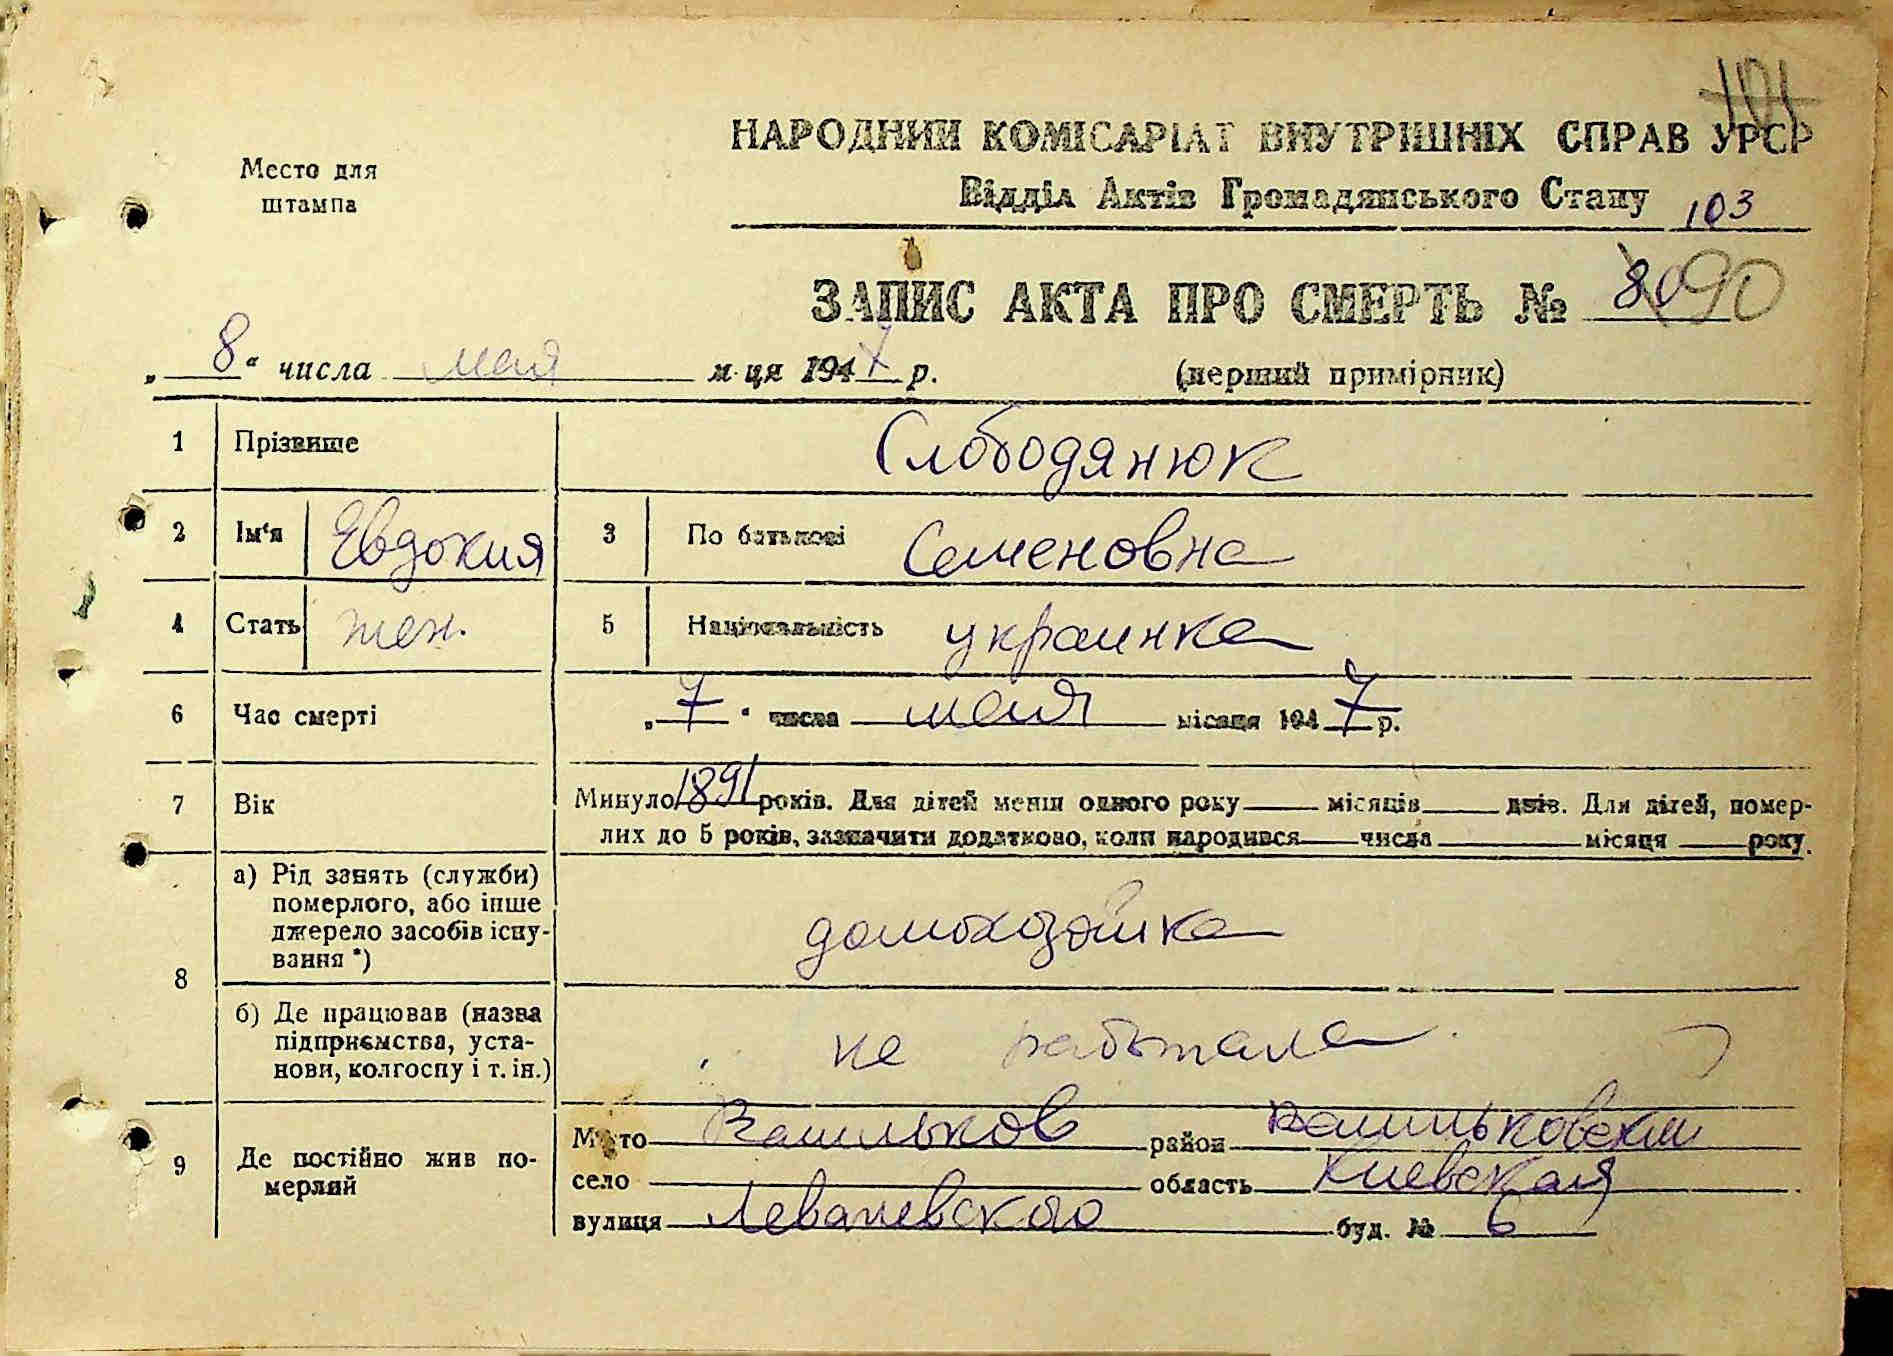 101
НАРОДНИЙ КОМІСАРІАТ ВНУТРІШНІХ СПРАВ УРСР
Место для
штампа
Відділ Актів Громадянського Стану 103
ЗАПИС АКТА ПРО СМЕРТЬ № 80 90
„ 8 “ числа мая м-ця 1947 р. (перший примірник)
1 Прізвище Слободянюк
2 Ім‘я Евдокия 3 По батькові Семеновна
4 Стать жен. 5 Національність украинка
6 Час смерті „ 7 “ числа мая місяця 1947 р.
7 Вік Минуло 1891 років. Для дітей менш одного року місяців днів. Для дітей, помер-
лих до 5 років, зазначити додатково, коли народився числа місяця року.
8 а) Рід занять (служби)
померлого, або інше
джерело засобів існу-
вання *) домохозяйка
б) Де працював (назва
підприємства, уста-
нови, колгоспу і т. ін.) не работала.
9 Де постійно жив по-
мерлий
Місто Васильков район Васильковский
село область Киевская
вулиця Леваневского буд. № 6